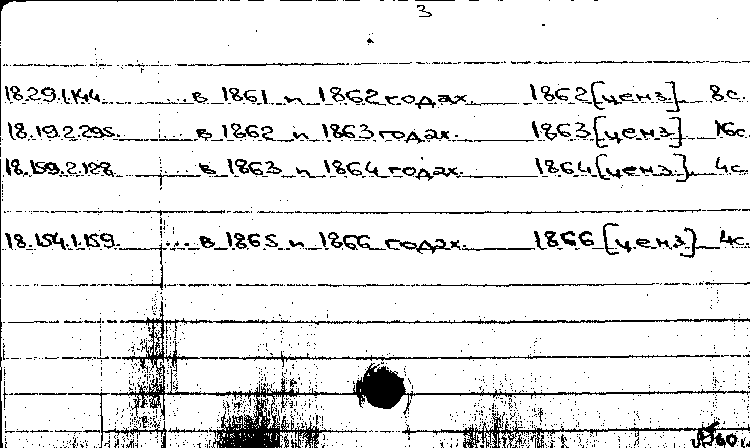 3
18.29.1.44. ... в 1861 и 1862 годах. 1862 [ценз.] 8с.
18.19.2.295. ... в 1862 и 1863 годах. 1863 [ценз.] 16с.
18.159.2.128 ... в 1863 и 1864 годах. 1864 [ценз.] 4с.
18.154.1.159. ... в 1865 и 1866 годах. 1866 [ценз.] 4с.